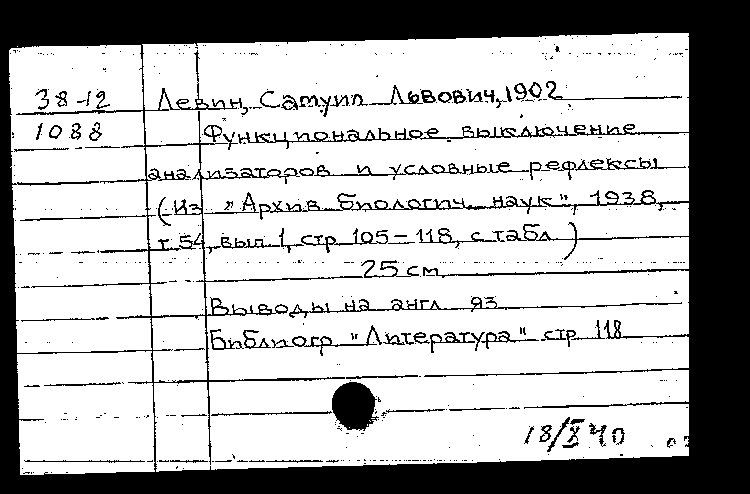 38-12 Левин, Самуил Львович, 1902
1088 Функциональное выключение
анализаторов и условные рефлексы
(Из "Архив биологич. наук", 1938,
т. 54, вып. 1, стр 105-118, с табл.)
25 см.
Выводы на англ. яз
Библиогр "Литература" стр 118
18/X 40